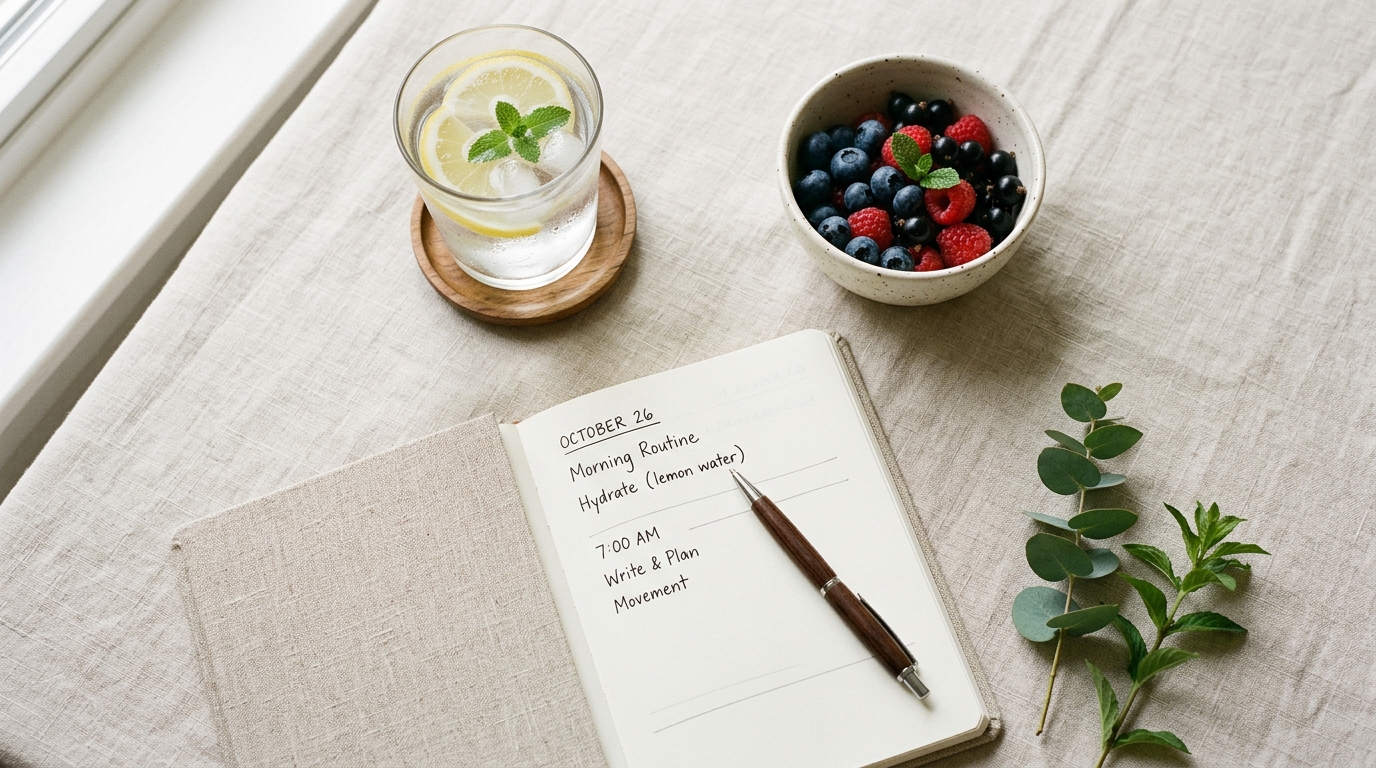 OCTOBER 26
Morning Routine
Hydrate (lemon water)
7:00 AM
Write & Plan
Movement